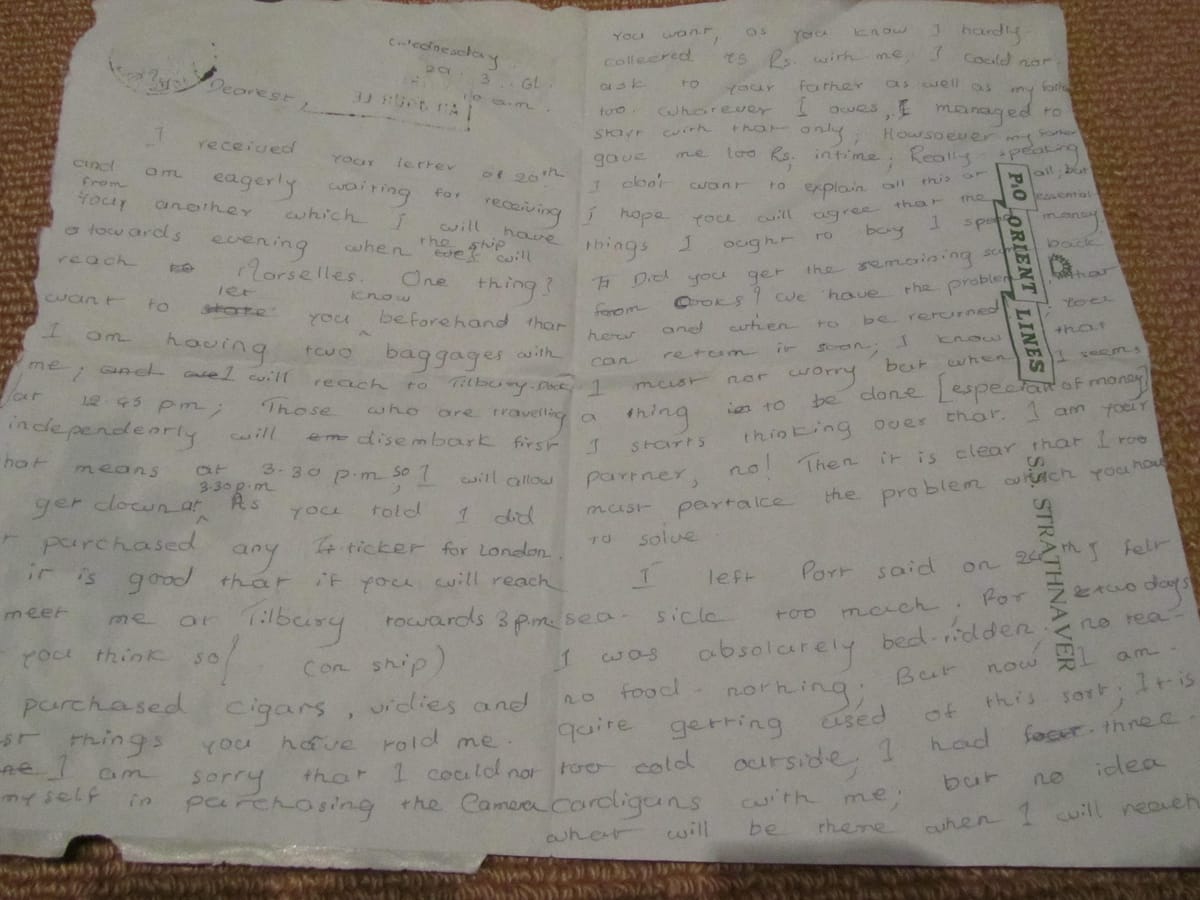 Wednesday
29. 3. 61.
10 a.m.
Dearest,
I received your letter of 20th
and am eagerly waiting for receiving
from your another which I will have
towards evening when the ship will
reach Marselles. One thing?
want to let you know beforehand that
I am having two baggages with
me; I will reach to Tilbury Dock
at 12.45 pm; Those who are travelling
independently will disembark first
hat means at 3-30 p.m, so I will allow
get down at 3.30 p.m As you told I did
purchased any ticket for London.
it is good that if you will reach
meet me at Tilbury towards 3 p.m.
you think so! (on ship)
purchased cigars, vidies and
st things you have told me.
I am sorry that I could not
myself in purchasing the Camera
you want, as you know I hardly
collected 75 Rs. with me, I could not
ask to your father as well as my father
too. Whatever I owes, I managed to
start with that only; Howsoever my father
gave me 100 Rs, intime; Really speaking
I don't want to explain all this at all; but
I hope you will agree that the essential
things I ought to buy I spent money
Did you get the remaining sum back
from Cooks? We have the problem that
how and when to be returned; you
can return it soon; I know that
I must not worry but when I seems
a thing is to be done [especially of money]
I starts thinking over that. I am your
partner, no! Then it is clear that I too
must partake the problem which you have
to solve
I left Port said on 24th I felt
sea-sick too much. For two days
I was absolutely bed-ridden, no tea-
no food - nothing; But now I am
quite getting used of this sort; It is
too cold outside, I had three
cardigans with me; but no idea
what will be there when I will reach
P&O ORIENT LINES
S.S. STRATHNAVER